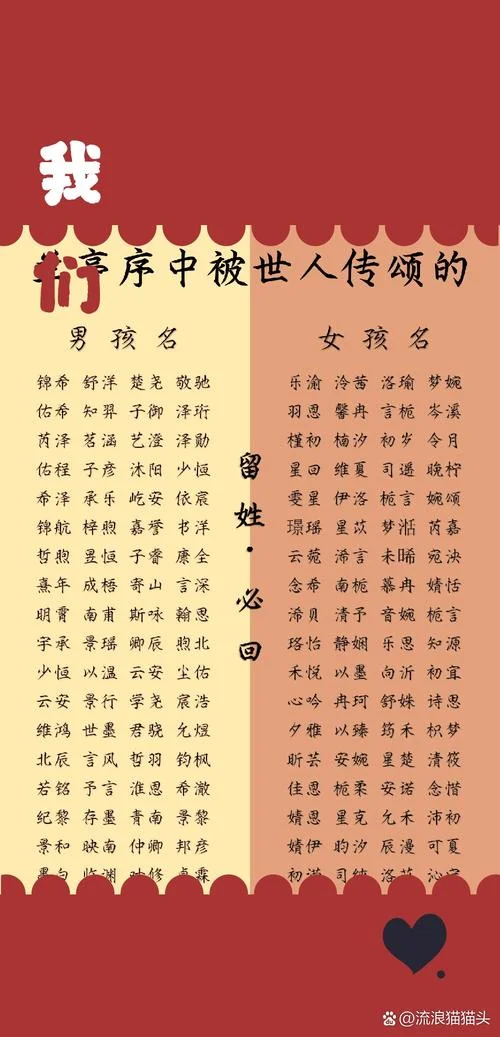 我
们
亭序中被世人传颂的
男孩名
锦希 舒洋 楚尧 敬驰
佑希 知羿 子御 泽珩
芮泽 茗涵 艺澄 泽勋
佑程 子彦 沐阳 少恒
希泽 承乐 屹安 依宸
锦航 梓煦 嘉誉 书洋
哲煦 昱恒 子睿 康全
熹年 成梧 寄山 言深
明霄 南甫 斯咏 翰思
宇承 景瑶 卿辰 煦北
少恒 以温 云安 尘佑
云安 景行 学尧 宸浩
维鸿 世墨 君骁 允煜
北辰 言风 哲羽 钧枫
若铭 予言 淮思 希澈
纪黎 存墨 青南 景黎
景和 映南 仲卿 邦彦
留姓·必回
女孩名
乐渝 泠茜 洛瑜 梦婉
羽恩 馨冉 言栀 岑溪
槿初 楠汐 初岁 令月
星回 维夏 司遥 晚柠
雯星 伊洛 栀言 婉颂
璟瑶 星苡 梦湉 芮嘉
云菀 浠言 未晞 宛泱
念希 南栀 慕冉 婧恬
浠贝 清予 音婉 栀言
珞怡 静娴 乐思 知源
禾悦 以墨 向沂 初宜
心吟 冉珂 舒姝 诗思
夕雅 以臻 筠禾 枳梦
昕芸 安婉 星楚 清筱
佳恩 栀柔 安诺 念惜
婧恩 星克 允禾 沛初
婧伊 昀汐 辰漫 可夏
@流浪猫猫头